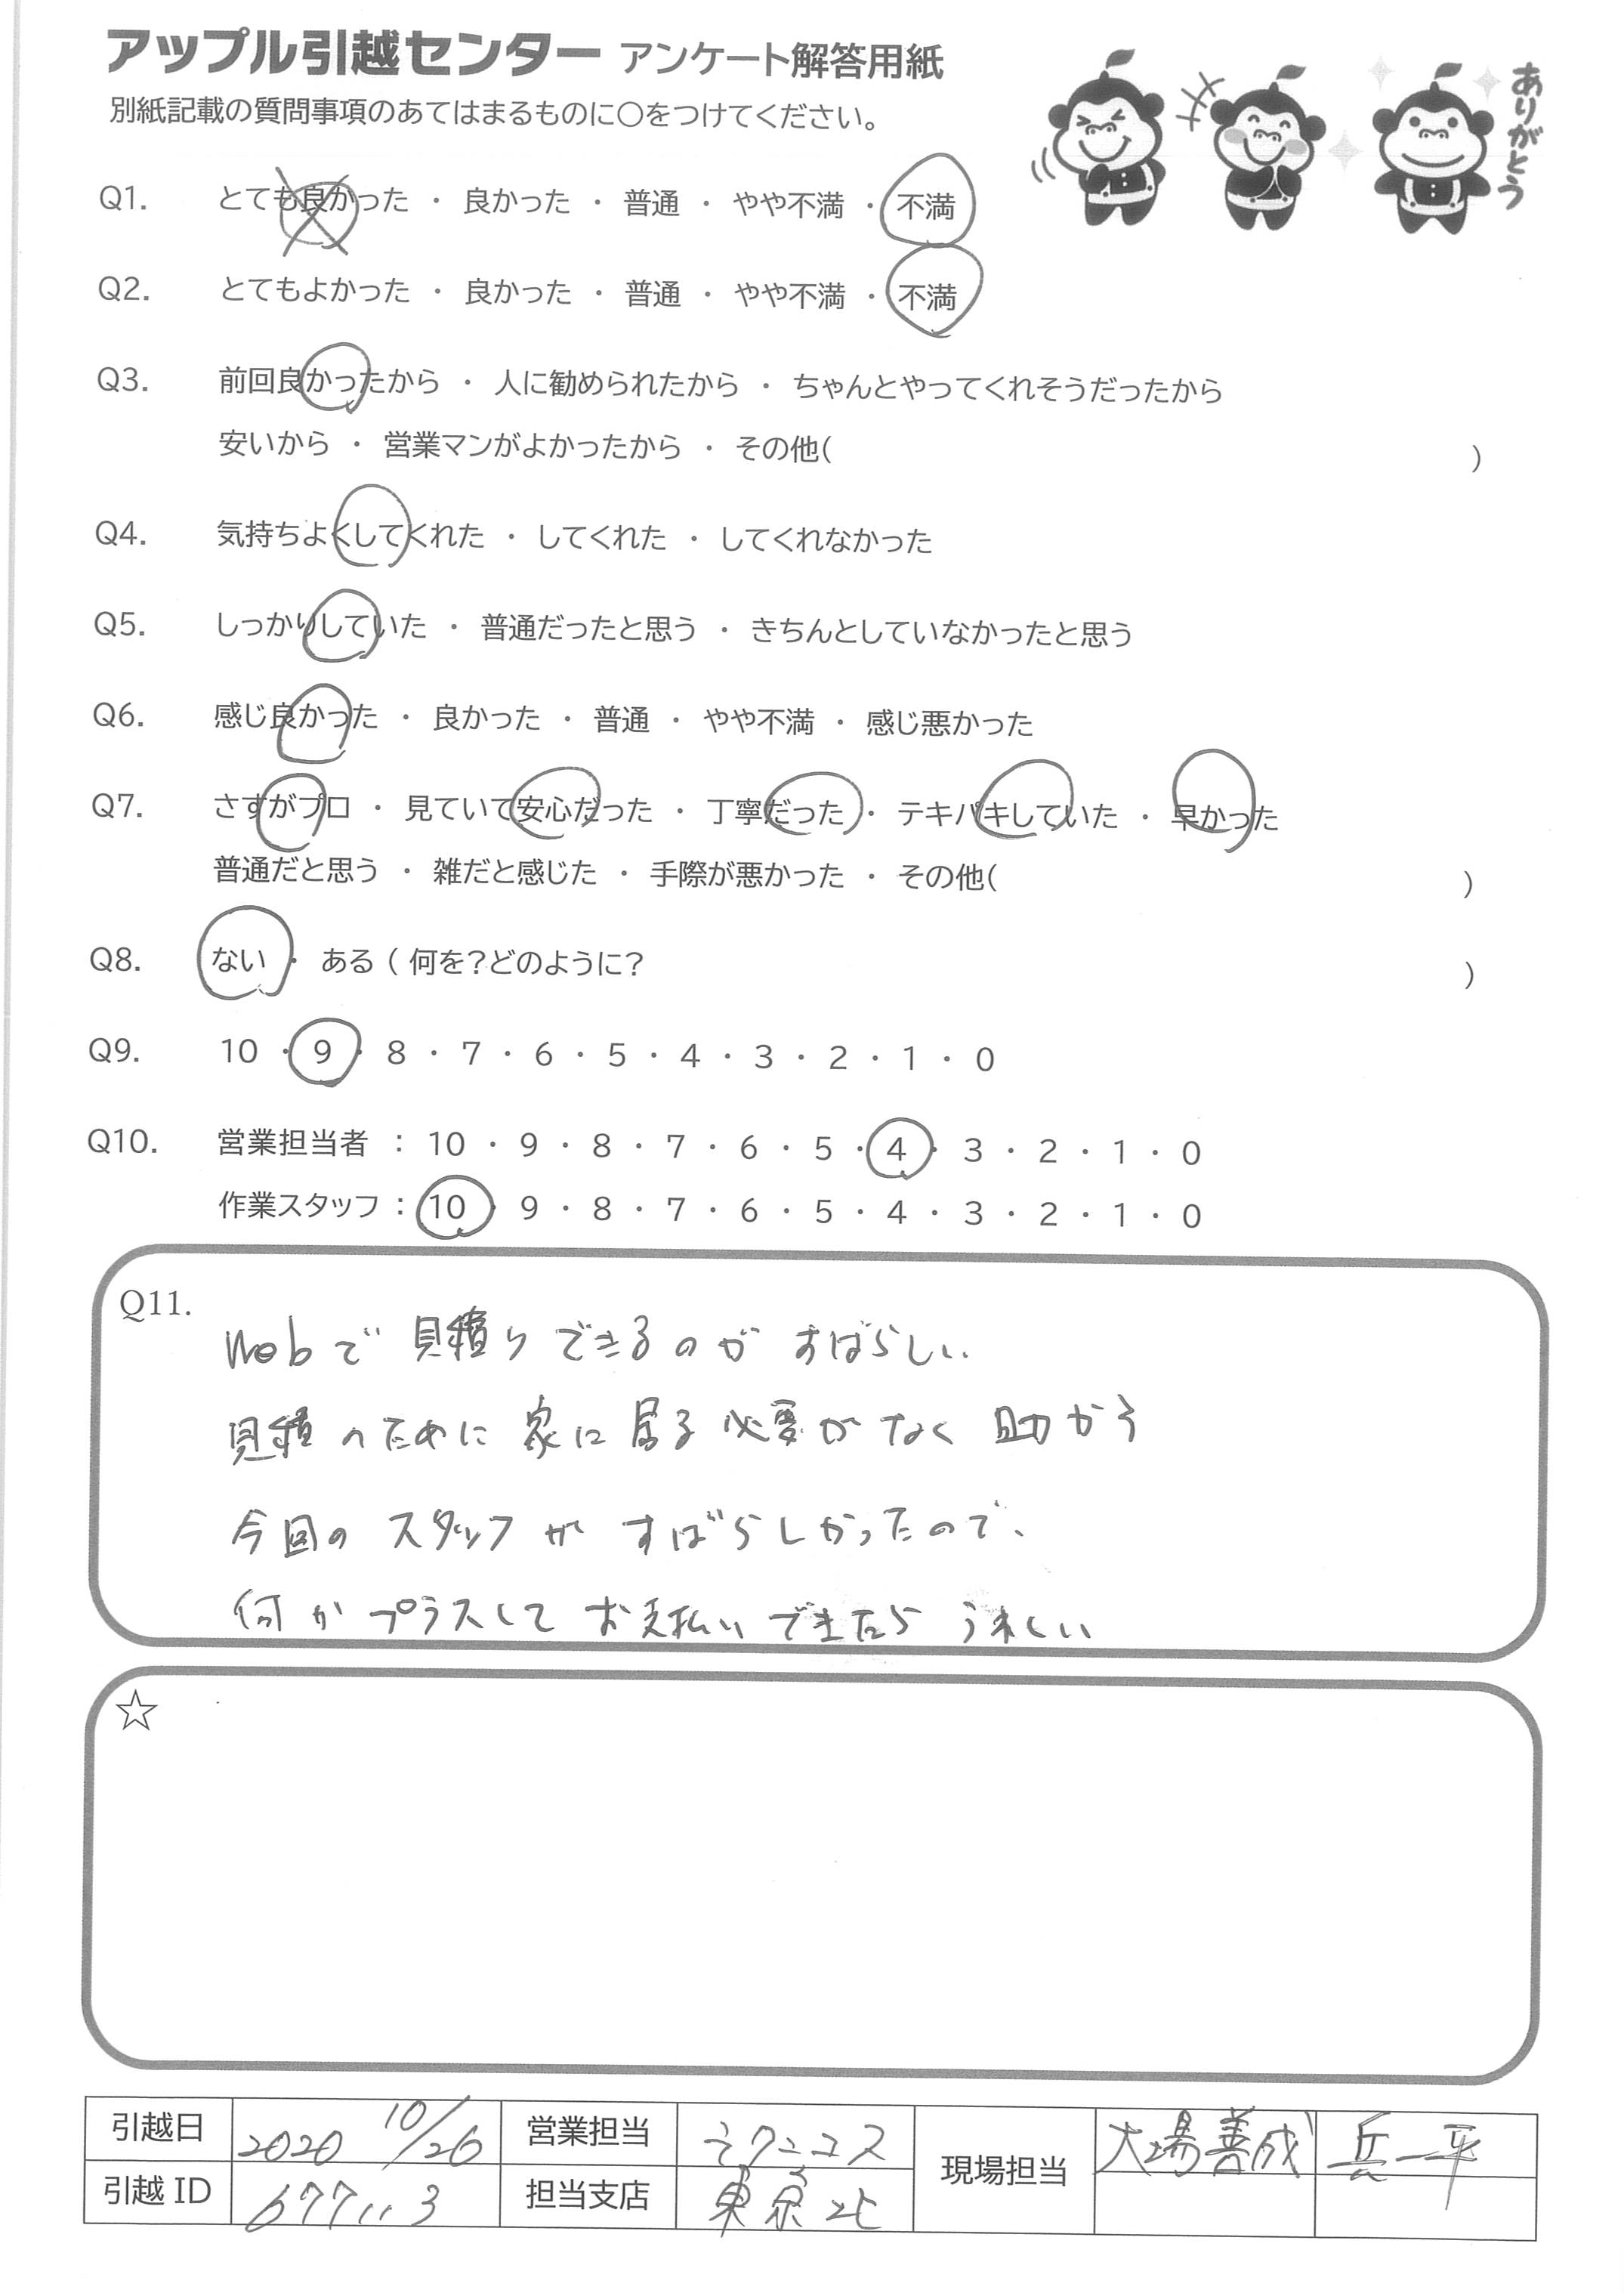 アップル引越センター アンケート解答用紙
別紙記載の質問事項のあてはまるものに○をつけてください。
ありがとう
Q1. とても良かった ・ 良かった ・ 普通 ・ やや不満 ・ 不満
Q2. とてもよかった ・ 良かった ・ 普通 ・ やや不満 ・ 不満
Q3. 前回良かったから ・ 人に勧められたから ・ ちゃんとやってくれそうだったから
安いから ・ 営業マンがよかったから ・ その他( )
Q4. 気持ちよくしてくれた ・ してくれた ・ してくれなかった
Q5. しっかりしていた ・ 普通だったと思う ・ きちんとしていなかったと思う
Q6. 感じ良かった ・ 良かった ・ 普通 ・ やや不満 ・ 感じ悪かった
Q7. さすがプロ ・ 見ていて安心だった ・ 丁寧だった ・ テキパキしていた ・ 早かった
普通だと思う ・ 雑だと感じた ・ 手際が悪かった ・ その他( )
Q8. ない ・ ある ( 何を?どのように? )
Q9. 10 ・ 9 ・ 8 ・ 7 ・ 6 ・ 5 ・ 4 ・ 3 ・ 2 ・ 1 ・ 0
Q10. 営業担当者 : 10 ・ 9 ・ 8 ・ 7 ・ 6 ・ 5 ・ 4 ・ 3 ・ 2 ・ 1 ・ 0
作業スタッフ : 10 ・ 9 ・ 8 ・ 7 ・ 6 ・ 5 ・ 4 ・ 3 ・ 2 ・ 1 ・ 0
Q11.
Webで見積りできるのがすばらしい
見積のために家に居る必要がなく助かる
今回のスタッフがすばらしかったので、
何かプラスしてお支払いできたらうれしい
☆
引越日 2020 10/26 営業担当 ラクニコス 現場担当 大場善成 兵一平
引越ID 677113 担当支店 東京北